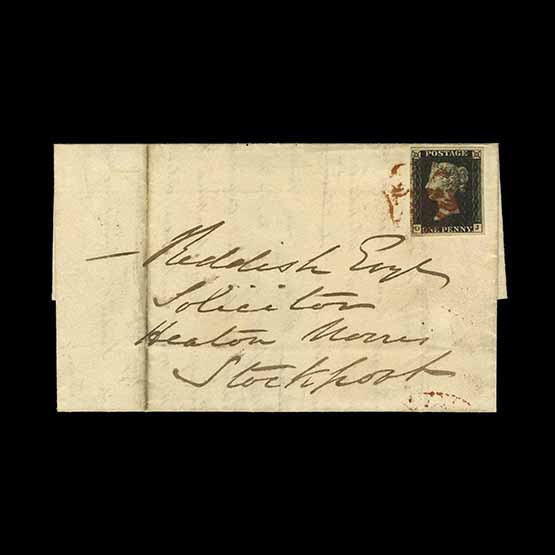 POSTAGE
ONE PENNY
— Reddish Esqr
Solicitor
Heaton Norris
Stockport